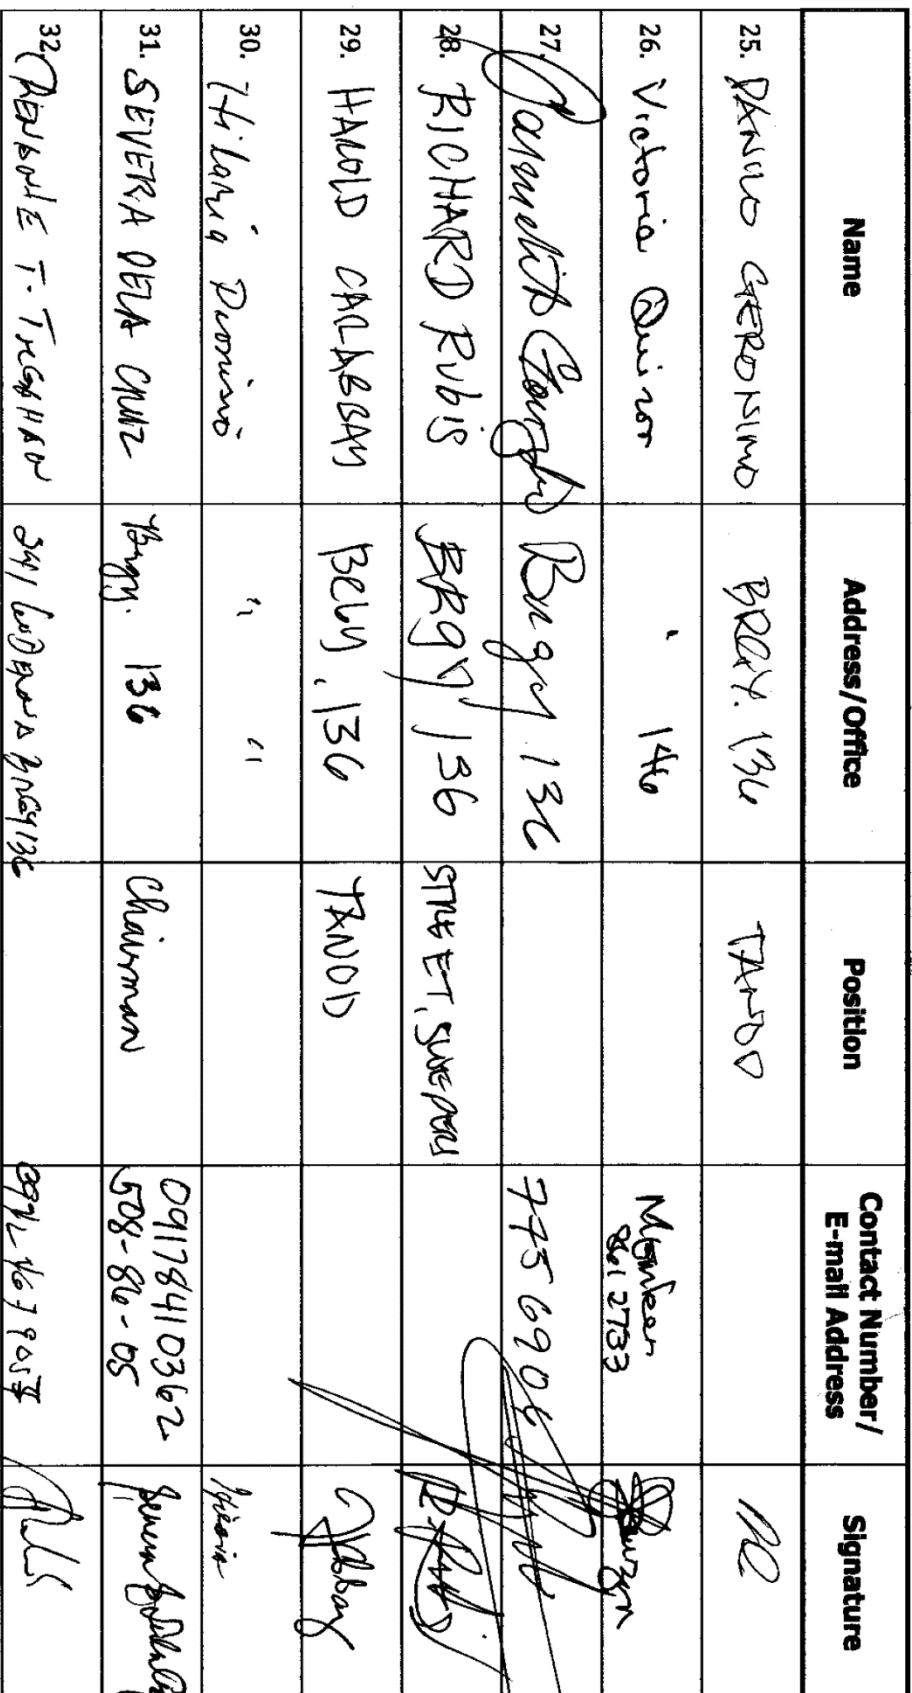 Name Address/Office Position Contact Number/ E-mail Address Signature
25. DANILO GERONIMO BRGY. 136 TANOD
26. Victoria Quizon " 146 Member 8612733
27. Carmelita Gonzales Brgy 136 775 6906
28. RICHARD RUbiS BRgy 136 STREET, SWEPERS
29. HAROLD CALABBAY BRGY. 136 TANOD
30. Hilaria Dionisio " "
31. SEVERA DELA CRUZ Brgy. 136 Chairman 09178410362
508-86-05
32. T. 136